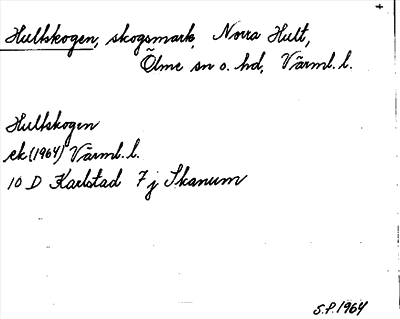 +
Hultskogen, skogsmark, Norra Hult,
Ölme sn o. hd, Värml. l.
Hultskogen
ek (1964) Värml. l.
10 D Karlstad 7 j Skanum
S.P. 1964